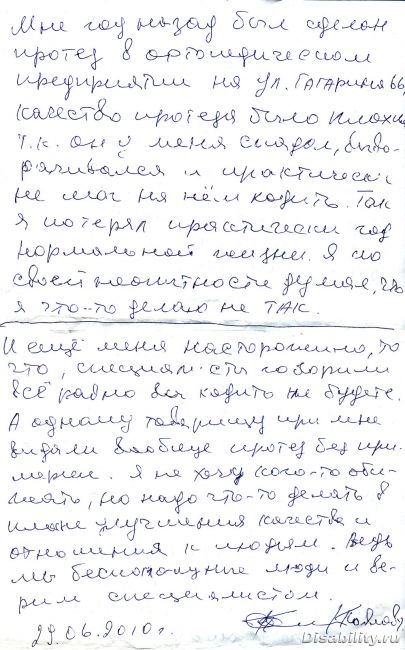 Мне год назад был сделан
протез в ортопедическом
предприятии на ул. ГАГАРИНА 66,
качество протеза было плохим
т.к. он у меня спадал, выво-
рачивался и практически
не мог на нём ходить. Так
я потерял практически год
нормальной жизни. Я по
своей неопытности думал, что
я что-то делаю не ТАК.
И ещё меня насторожило, то
что, специалисты говорили
всё равно вы ходить не будете.
А одному товарищу при мне
выдали вообще протез без при-
мерки. Я не хочу кого-то оби-
жать, но надо что-то делать в
плане улучшения качества и
отношения к людям. Ведь
мы беспомощные люди и ве-
рим специалистом.
29.06.2010г.
Disability.ru